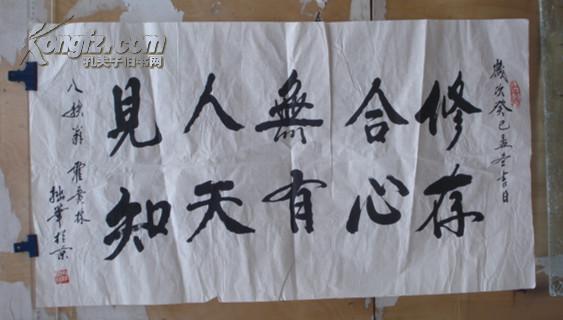 歲次癸巳孟吉日
修合無人見
存心有天知
八秩翁霍林
拙筆於京
Kongfz.com
孔夫子旧书网